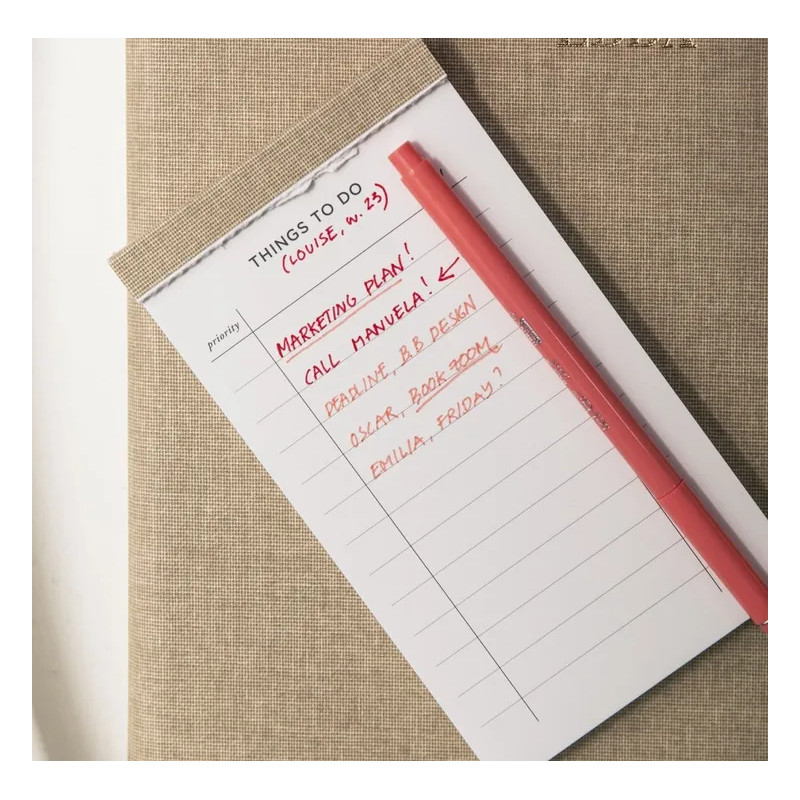 THINGS TO DO
(LOUISE, W. 23)
priority
MARKETING PLAN!
CALL MANUELA! ←
DEADLINE, BB DESIGN
OSCAR, BOOK ZOOM
EMILIA, FRIDAY?